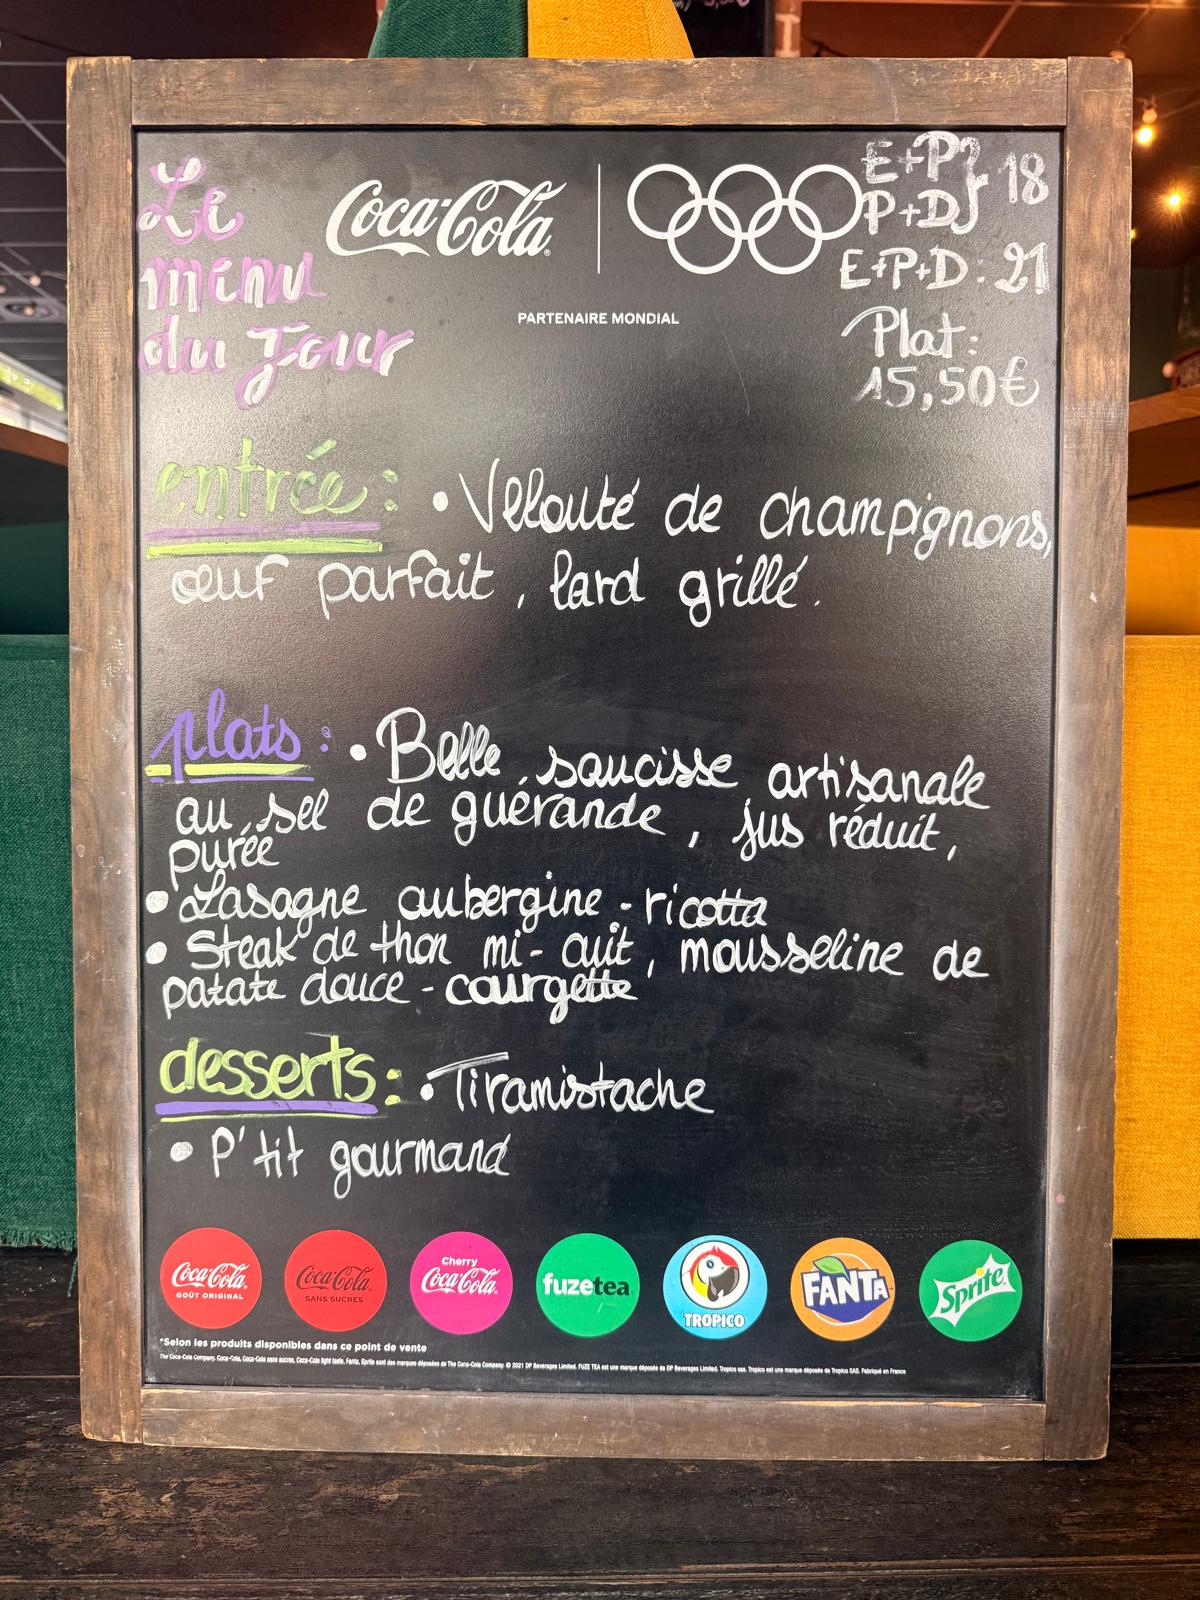 Le
menu
du Jour
Coca-Cola
PARTENAIRE MONDIAL
E+P } 18
P+D
E+P+D : 21
Plat :
15,50€
entrée : • Velouté de champignons,
œuf parfait, lard grillé.
plats : • Belle saucisse artisanale
au sel de guérande, jus réduit,
purée
• Lasagne aubergine - ricotta
• Steak de thon mi-cuit, mousseline de
patate douce - courgette
desserts : • Tiramistache
• P'tit gourmand
Coca-Cola GOÛT ORIGINAL
Coca-Cola SANS SUCRES
Cherry Coca-Cola
fuzetea
TROPICO
FANTA
Sprite
*Selon les produits disponibles dans ce point de vente
The Coca-Cola Company. Coca-Cola, Coca-Cola sans sucres, Coca-Cola light taste, Fanta, Sprite sont des marques déposées de The Coca-Cola Company. © 2021 DP Beverages Limited. FUZE TEA est une marque déposée de DP Beverages Limited. Tropico sas. Tropico est une marque déposée de Tropico SAS. Fabriqué en France